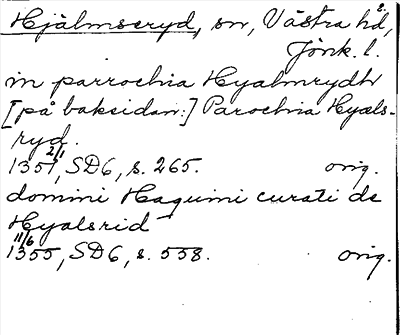 Hjälmseryd, sn, Västra hd,
Jönk. l.
in parrochia Hyalmrydh
[på baksidan:] Parochia Hyæls-
ryd.
1351 2/1, SD6, s. 265. orig.
domini Haquini curati de
Hyalsrid
1355 11/6, SD6, s. 558. orig.